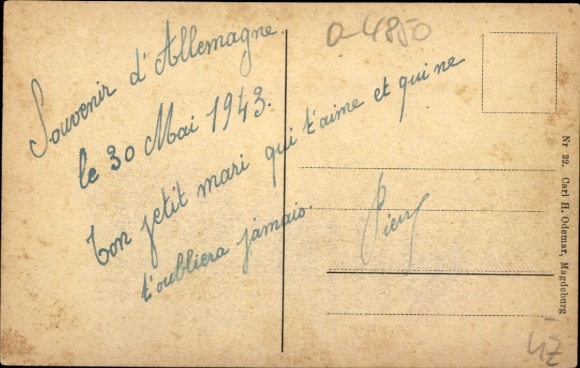 Souvenir d'Allemagne.
le 30 Mai 1943.
Ton petit mari qui t'aime et qui ne
t'oubliera jamais.
D-4850
Nr 32. Carl H. Odemar, Magdeburg